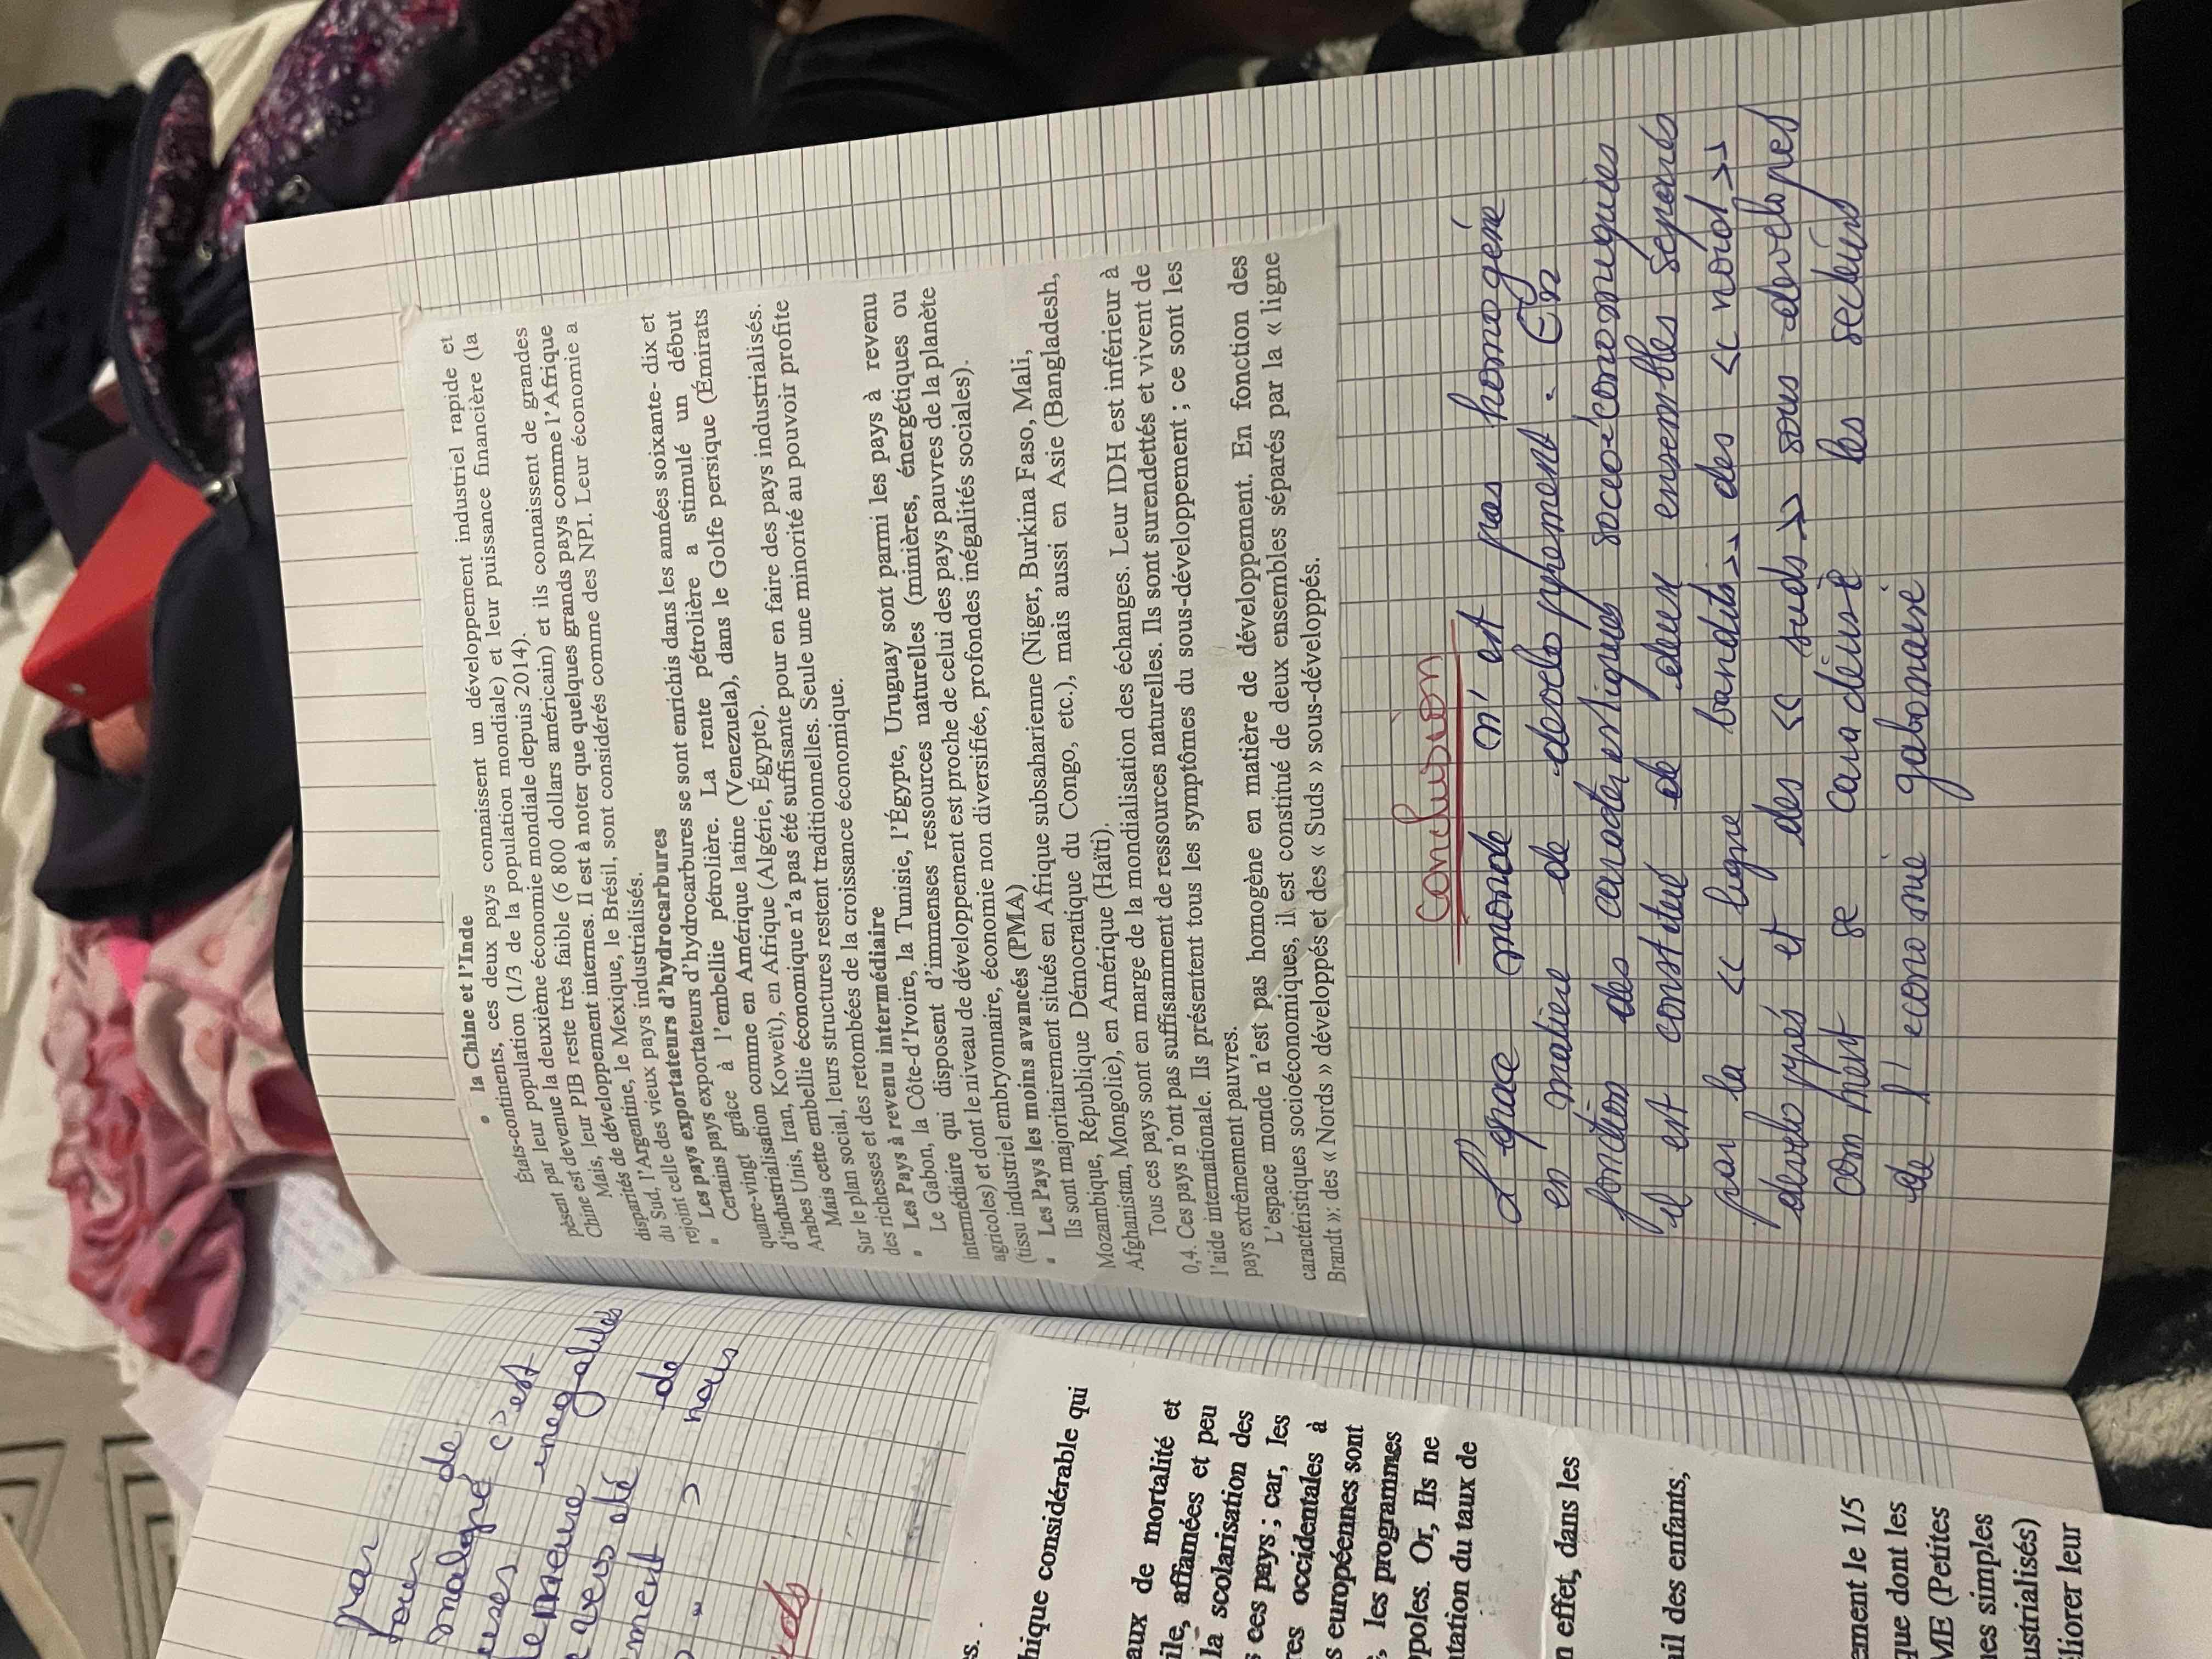 par
pour de
malgré c'est
demeure inégalités
vers
de
nous
hique considérable qui
aux de mortalité et
ile, affamées et peu
la scolarisation des
ces pays ; car, les
res occidentales à
s européennes sont
, les programmes
poles. Or, Ils ne
tation du taux de
n effet, dans les
ail des enfants,
ement le 1/5
que dont les
ME (Petites
nes simples
ustrialisés)
liorer leur
• la Chine et l'Inde
États-continents, ces deux pays connaissent un développement industriel rapide et
pèsent par leur population (1/3 de la population mondiale) et leur puissance financière (la
Chine est devenue la deuxième économie mondiale depuis 2014).
Mais, leur PIB reste très faible (6 800 dollars américain) et ils connaissent de grandes
disparités de développement internes. Il est à noter que quelques grands pays comme l'Afrique
du Sud, l'Argentine, le Mexique, le Brésil, sont considérés comme des NPI. Leur économie a
rejoint celle des vieux pays industrialisés.
▪ Les pays exportateurs d'hydrocarbures
Certains pays exportateurs d'hydrocarbures se sont enrichis dans les années soixante- dix et
quatre-vingt grâce à l'embellie pétrolière. La rente pétrolière a stimulé un début
d'industrialisation comme en Amérique latine (Venezuela), dans le Golfe persique (Émirats
Arabes Unis, Iran, Koweït), en Afrique (Algérie, Égypte).
Mais cette embellie économique n'a pas été suffisante pour en faire des pays industrialisés.
Sur le plan social, leurs structures restent traditionnelles. Seule une minorité au pouvoir profite
des richesses et des retombées de la croissance économique.
▪ Les Pays à revenu intermédiaire
Le Gabon, la Côte-d'Ivoire, la Tunisie, l'Égypte, Uruguay sont parmi les pays à revenu
intermédiaire qui disposent d'immenses ressources naturelles (minières, énergétiques ou
agricoles) et dont le niveau de développement est proche de celui des pays pauvres de la planète
(tissu industriel embryonnaire, économie non diversifiée, profondes inégalités sociales).
▪ Les Pays les moins avancés (PMA)
Ils sont majoritairement situés en Afrique subsaharienne (Niger, Burkina Faso, Mali,
Mozambique, République Démocratique du Congo, etc.), mais aussi en Asie (Bangladesh,
Afghanistan, Mongolie), en Amérique (Haïti).
Tous ces pays sont en marge de la mondialisation des échanges. Leur IDH est inférieur à
0,4. Ces pays n'ont pas suffisamment de ressources naturelles. Ils sont surendettés et vivent de
l'aide internationale. Ils présentent tous les symptômes du sous-développement ; ce sont les
pays extrêmement pauvres.
L'espace monde n'est pas homogène en matière de développement. En fonction des
caractéristiques socioéconomiques, il est constitué de deux ensembles séparés par la « ligne
Brandt »: des « Nords » développés et des « Suds » sous-développés.
Conclusion
L'epace monde n'est pas homogéné
en matière de developpement. En
fonction des caracterestiques socco-économiques
il est constitué de deux ensembles séparés
par la « ligne bandits » des « noid »
developpés et des « suds » sous-developpés
comment se caradéusé les secteurs
de l'economie gabonaise